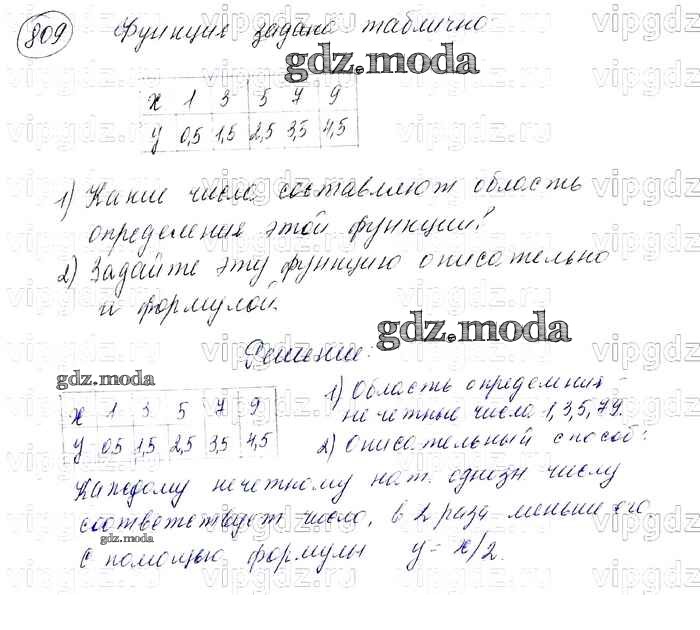 809 Функция задана таблично
gdz.moda
x 1 3 5 7 9
y 0,5 1,5 2,5 3,5 4,5
1) Какие числа составляют область
определения этой функции?
2) Задайте эту функцию описательно
и формулой.
gdz.moda
Решение:
gdz.moda
x 1 3 5 7 9
y 0,5 1,5 2,5 3,5 4,5
1) Область определения -
нечетные числа 1,3,5,7,9.
2) Описательный способ:
Каждому нечетному нат. однозн числу
соответствует число, в 2 раза меньше его.
gdz.moda
С помощью формулы y = x/2.